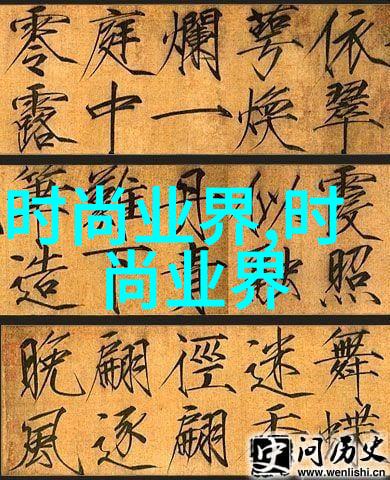 依翠
萼煥
爛一
庭中
零露
霞照
似
難下
筆造
舞蝶
迷香
徑翩
翩逐
晚風
时尚业界,时
尚业界
史问历史
www.wenlishi.cn